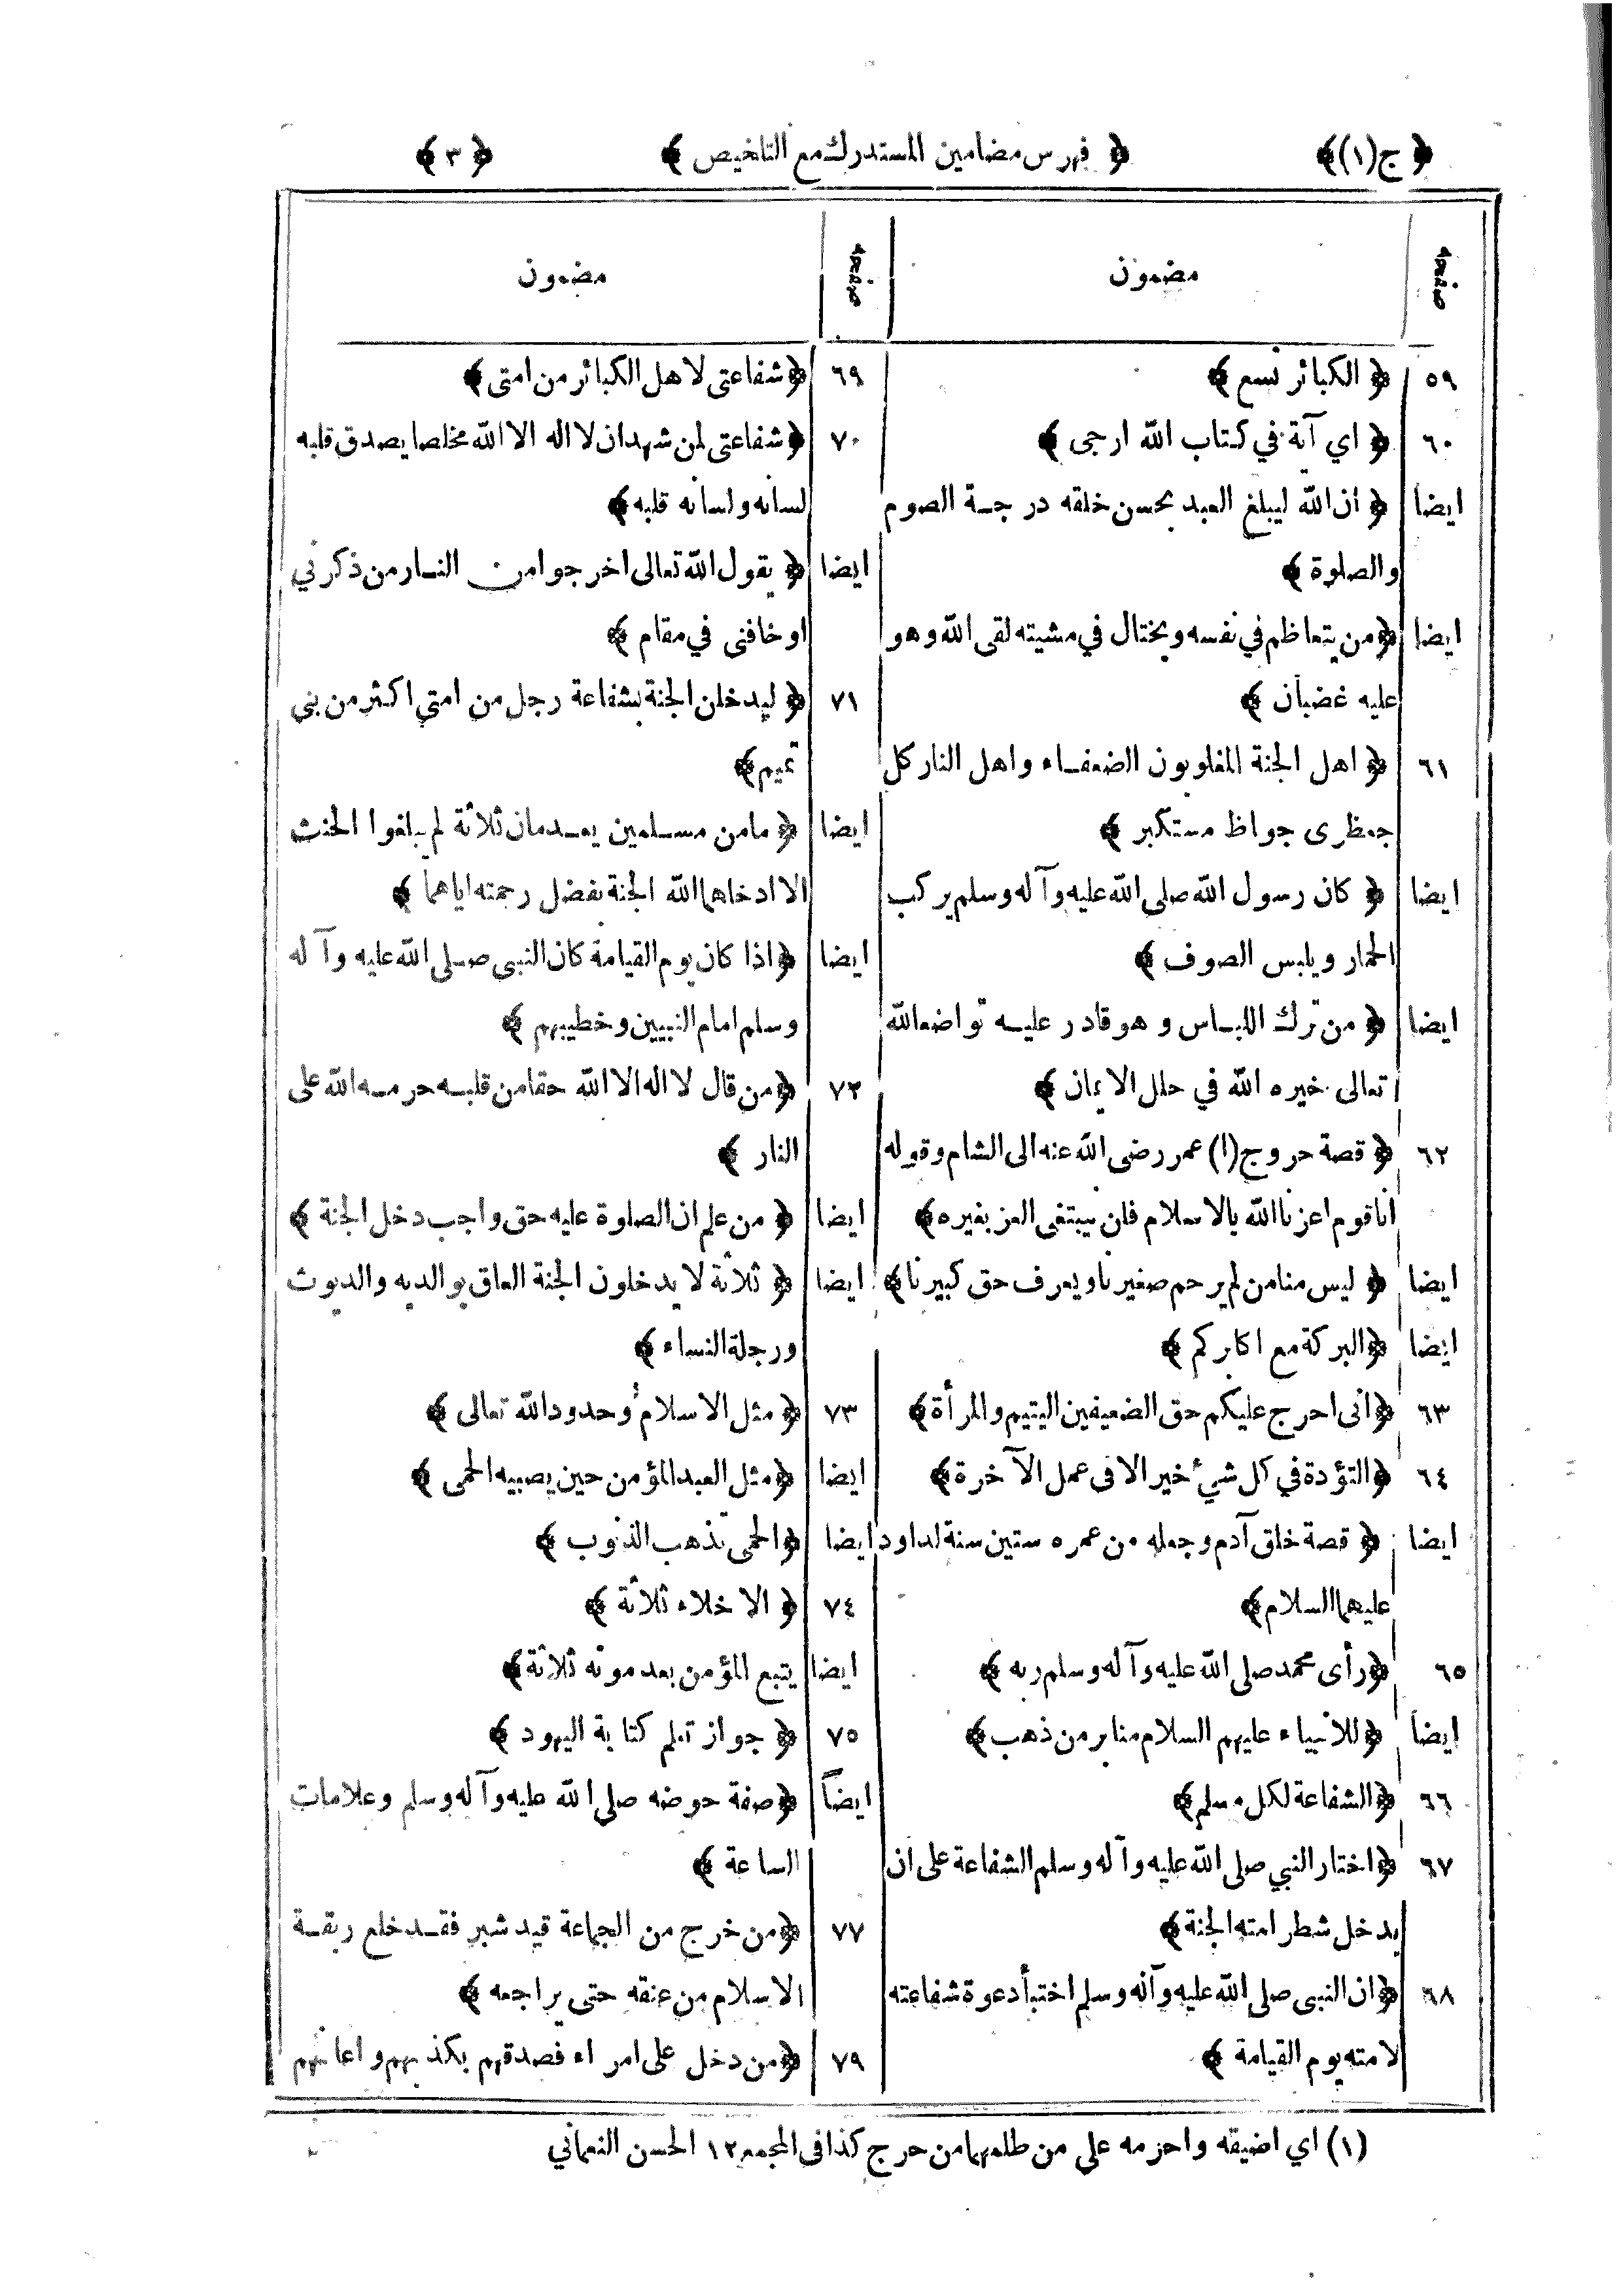 ﴿ ج(١)﴾ ﴿ فهرس مضامين المستدرك مع التلخيص ﴾ ﴿ ٣ ﴾
صفحه مضمون
٥٩ ﴿ الكبائر تسع ﴾
٦٠ ﴿ اي آية في كتاب الله ارجى ﴾
ايضا ﴿ ان الله ليبلغ العبد بحسن خلقه درجـة الصوم
والصلوة ﴾
ايضا ﴿ من يتعاظم في نفسه ويختال في مشيته لقى الله وهو
عليه غضبان ﴾
٦١ ﴿ اهل الجنة المغلوبون الضعفـاء واهل النار كل
جعظرى جواظ مستكبر ﴾
ايضا ﴿ كان رسول الله صلى الله عليه وآله وسلم يركب
الحمار ويلبس الصوف ﴾
ايضا ﴿ من ترك اللبـاس وهو قادر عليـه تواضعا لله
تعالى خيره الله في حلل الايمان ﴾
٦٢ ﴿ قصة خروج (١) عمر رضى الله عنه الى الشام وقوله
انا قوم اعزنا الله بالاسلام فلن يبتغى العز بغيره ﴾
ايضا ﴿ ليس منا من لم يرحم صغيرنا ويعرف حق كبيرنا ﴾
ايضا ﴿ البركة مع اكابركم ﴾
٦٣ ﴿ انى احرج عليكم حق الضعيفين اليتيم والمرأة ﴾
٦٤ ﴿ التؤدة في كل شيء خير الا فى عمل الآخرة ﴾
ايضا ﴿ قصة خلق آدم وجعله من عمره ستين سنة لداود
عليهما السلام ﴾
٦٥ ﴿ رأى محمد صلى الله عليه وآله وسلم ربه ﴾
ايضا ﴿ للانبياء عليهم السلام منابر من ذهب ﴾
٦٦ ﴿ الشفاعة لكل مسلم ﴾
٦٧ ﴿ اختار النبي صلى الله عليه وآله وسلم الشفاعة على ان
يدخل شطر امته الجنة ﴾
٦٨ ﴿ ان النبى صلى الله عليه وآله وسلم اختبأ دعوة شفاعته
لامته يوم القيامة ﴾
صفحه مضمون
٦٩ ﴿ شفاعتى لاهل الكبائر من امتى ﴾
٧٠ ﴿ شفاعتى لمن شهد ان لا اله الا الله مخلصا يصدق قلبه
لسانه ولسانه قلبه ﴾
ايضا ﴿ يقول الله تعالى اخرجوا من النـار من ذكرني
او خافنى في مقام ﴾
٧١ ﴿ ليدخلن الجنة بشفاعة رجل من امتي اكثر من بني
تميم ﴾
ايضا ﴿ ما من مسـلمين يعـدمان ثلاثة لم يبلغوا الحنث
الا ادخلهما الله الجنة بفضل رحمته اياهما ﴾
ايضا ﴿ اذا كان يوم القيامة كان النبى صـلى الله عليه وآله
وسلم امام النبيين وخطيبهم ﴾
٧٢ ﴿ من قال لا اله الا الله حقا من قلبـه حرمـه الله على
النار ﴾
ايضا ﴿ من علم ان الصلوة عليه حق واجب دخل الجنة ﴾
ايضا ﴿ ثلاثة لا يدخلون الجنة العاق بوالديه والديوث
ورجلة النساء ﴾
٧٣ ﴿ مثل الاسلام وحدود الله تعالى ﴾
ايضا ﴿ مثل العبد المؤمن حين يصيبه الحمى ﴾
ايضا ﴿ الحمى تذهب الذنوب ﴾
٧٤ ﴿ الاخلاء ثلاثة ﴾
ايضا يتبع المؤمن بعد موته ثلاثة ﴾
٧٥ ﴿ جواز تعلم كتابة اليهود ﴾
ايضاً ﴿ صفة حوضه صلى الله عليه وآله وسلم وعلامات
الساعة ﴾
٧٧ ﴿ من خرج من الجماعة قيد شبر فقـد خلع ربقـة
الاسلام من عنقه حتى يراجعه ﴾
٧٩ ﴿ من دخل على امراء فصدقهم بكذبهم واعانهم
(١) اي اضيقه واحرمه على من ظلمهما من حرج كذا فى المجمع ١٢ الحسن النعماني